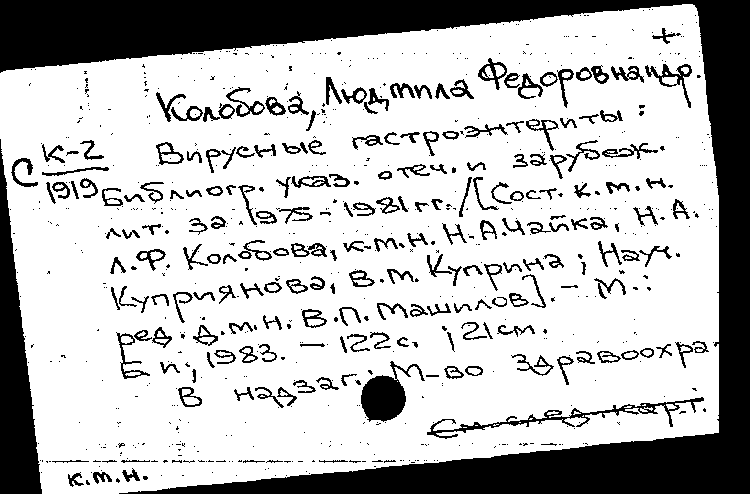 +
Колобова, Людмила Федоровна и др.
С К-2
1919
Вирусные гастроэнтериты :
Библиогр. указ. отеч. и зарубеж.
лит. за 1975-1981 гг. / [Сост. к.м.н.
Л.Ф. Колобова, к.м.н. Н.А. Чайка, Н.А.
Куприянова, В.М. Куприна ; Науч.
ред. д.м.н. В.П. Машилов]. - М. :
Б и., 1983. - 122 с. ; 21 см.
В надзаг.: М-во здравоохра-
См. след. карт.
к.м.н.